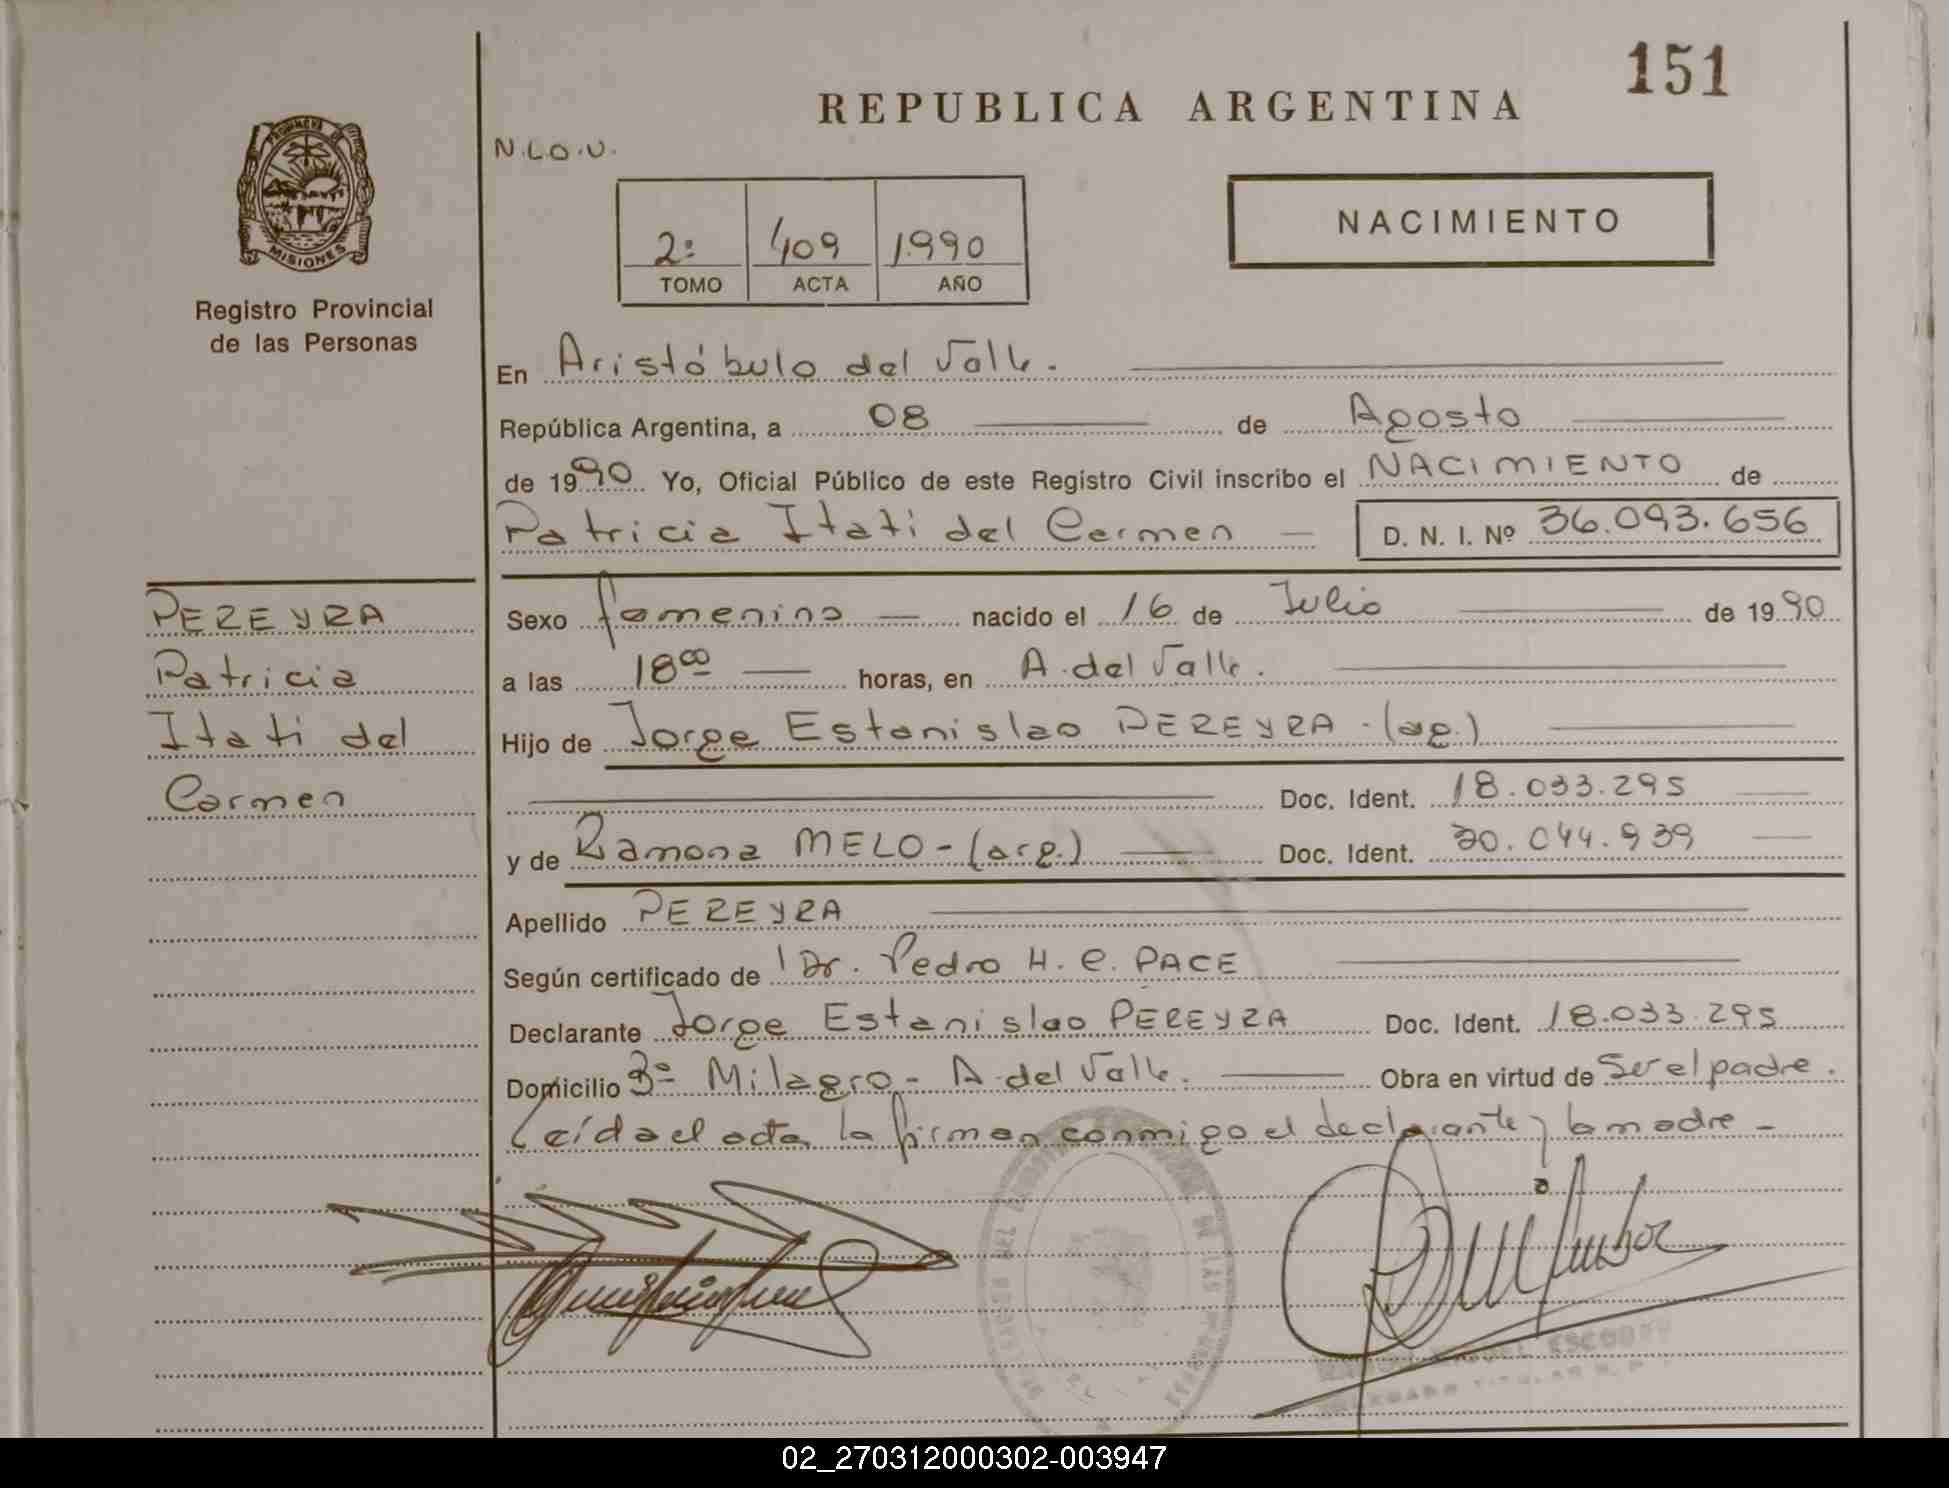 151
REPUBLICA ARGENTINA
PROVINCIA DE
MISIONES
Registro Provincial
de las Personas
N.L.O.U.
2º 409 1.990
TOMO ACTA AÑO
NACIMIENTO
En Aristóbulo del Valle.
República Argentina, a 08 de Agosto
de 1990 Yo, Oficial Público de este Registro Civil inscribo el NACIMIENTO de
Patricia Itati del Carmen — D. N. I. Nº 36.093.656
PEREYRA
Patricia
Itati del
Carmen
Sexo femenino — nacido el 16 de Julio de 1990
a las 18⁰⁰ — horas, en A. del Valle.
Hijo de Jorge Estanislao PEREYRA - (ag.)
Doc. Ident. 18.033.295
y de Ramona MELO - (arg.) — Doc. Ident. 20.044.939
Apellido PEREYRA
Según certificado de Dr. Pedro H. C. PACE
Declarante Jorge Estanislao PEREYRA Doc. Ident. 18.033.295
Domicilio Bº Milagro - A. del Valle. — Obra en virtud de Ser el padre.
Leída el acta la firman conmigo el declarante y la madre -
ESCOBAR
TITULAR
02_270312000302-003947